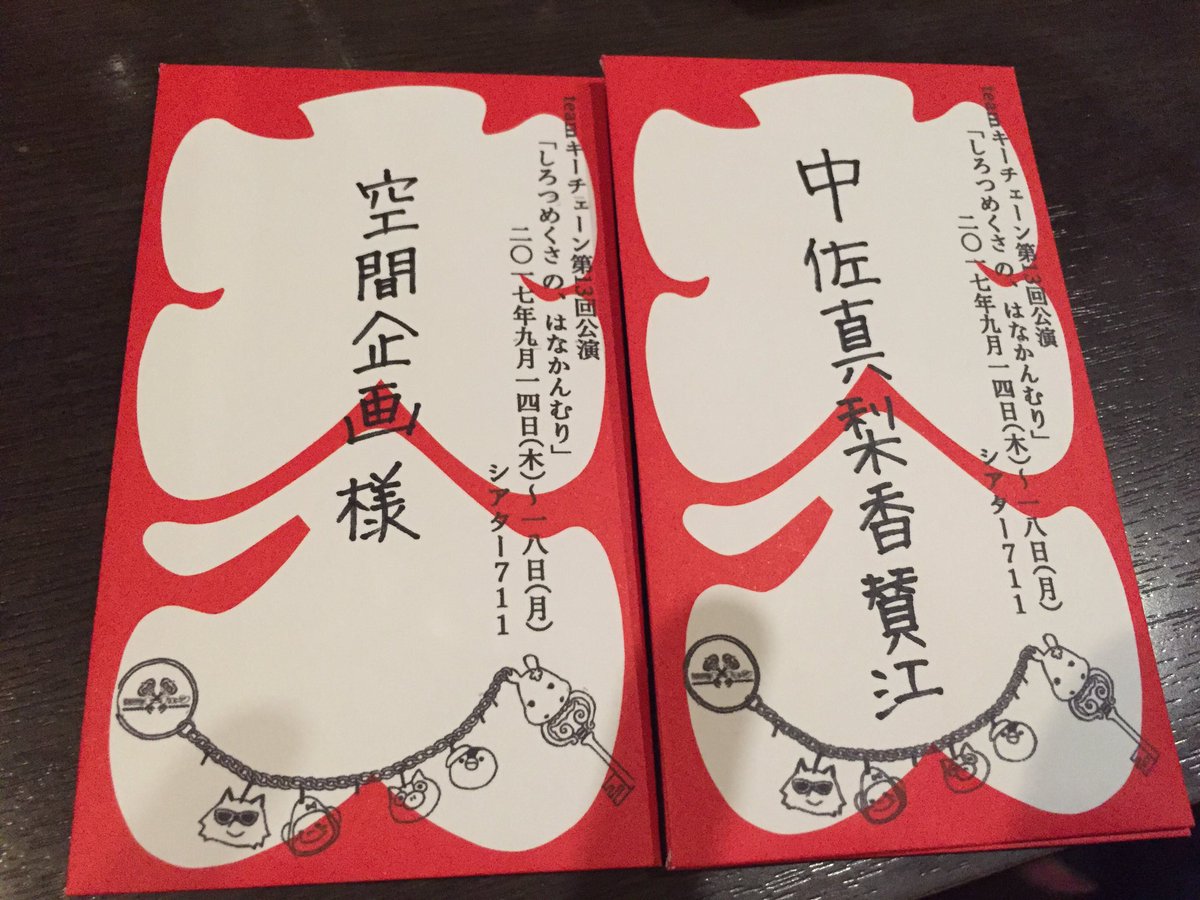 teamキーチェーン第13回公演
「しろつめくさ の、はなかんむり」
二〇一七年九月一四日(木)〜一八日(月)
シアター711
空間企画様
teamキーチェーン第13回公演
「しろつめくさ の、はなかんむり」
二〇一七年九月一四日(木)〜一八日(月)
シアター711
中佐真梨香賛江